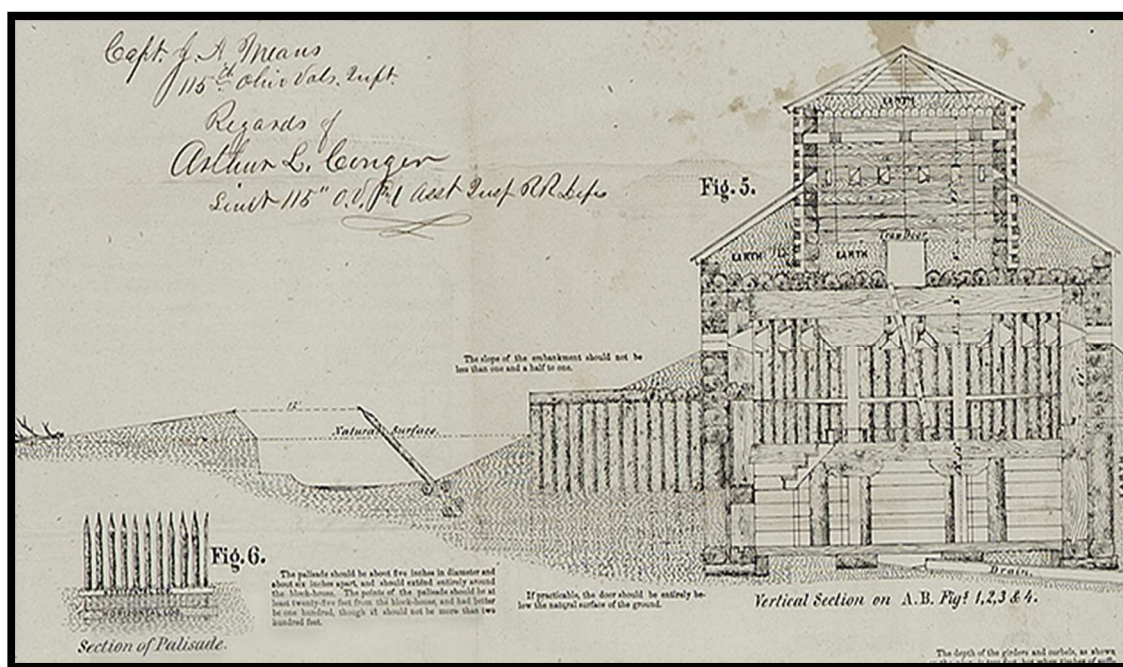 Capt. J. A. Means
115th Ohio Vols. Inft.
Regards of
Arthur L. Conger
Lieut 115" O.V.I & Asst Insp R.R. Defs
Fig. 5.
EARTH
Trap Door
EARTH
EARTH
The slope of the embankment should not be
less than one and a half to one.
12'
Natural Surface
EARTH
Fig. 6.
HORIZONTAL LOG
Section of Palisade.
The palisade should be about five inches in diameter and
about six inches apart, and should extend entirely around
the block-house. The points of the palisade should be at
least twenty-five feet from the block-house, and had better
be one hundred, though it should not be more than two
hundred feet.
If practicable, the door should be entirely be-
low the natural surface of the ground.
Drain.
Vertical Section on A.B. Figs 1,2,3 & 4.
The depth of the girders and corbels, as shown